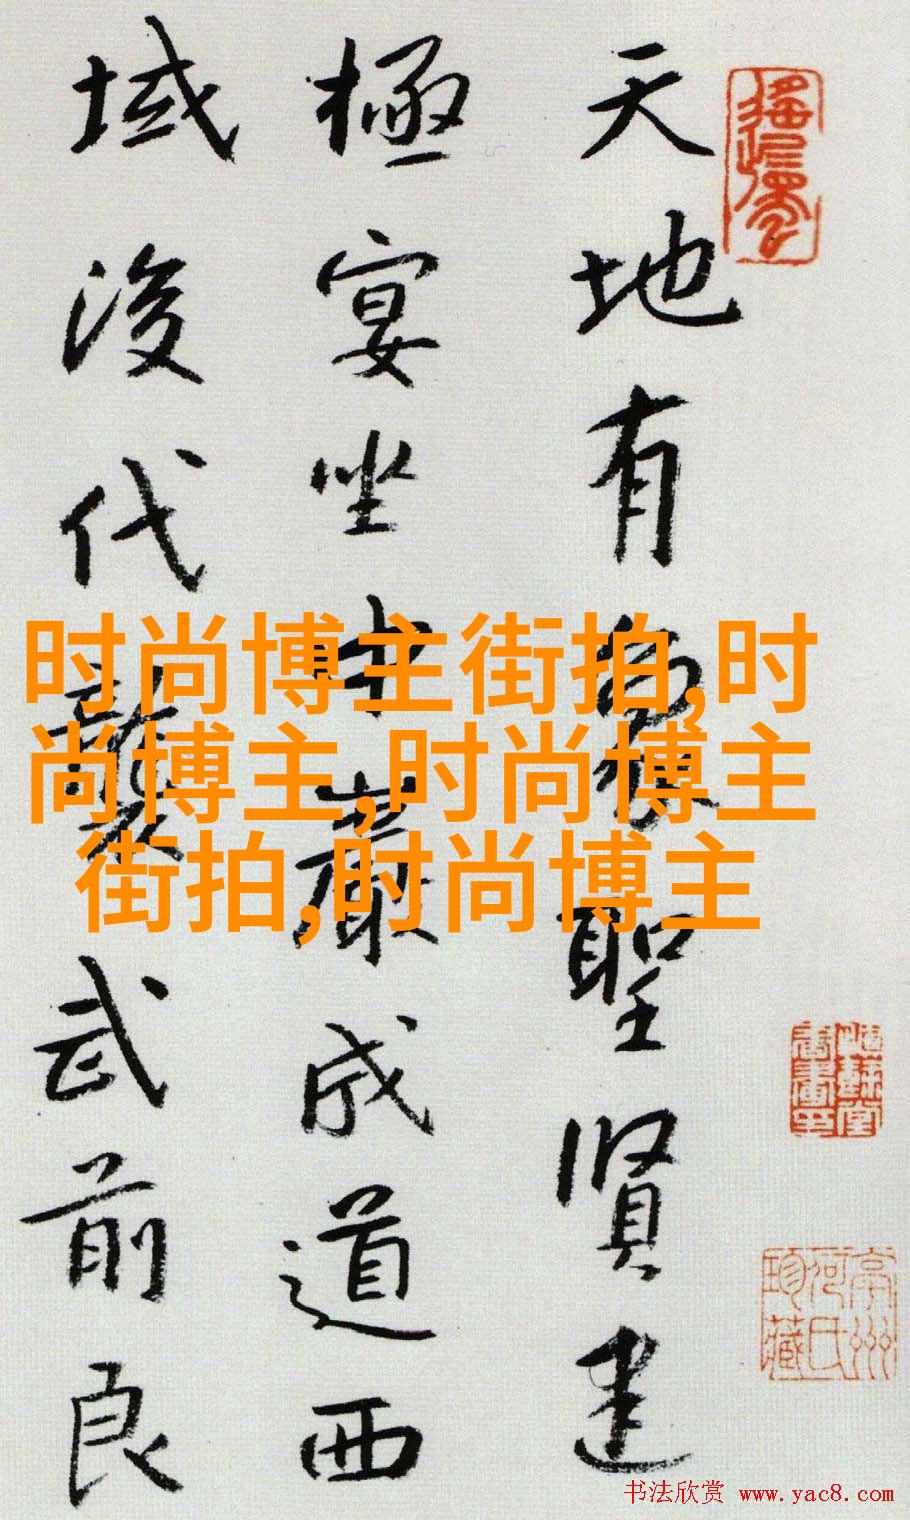 天地有象聖賢建
極宴坐中巖成道西
域後代襲武前良
时尚博主街拍,时
尚博主,时尚博主
街拍,时尚博主
亭州
河氏
珍藏
书法欣赏 www.yac8.com